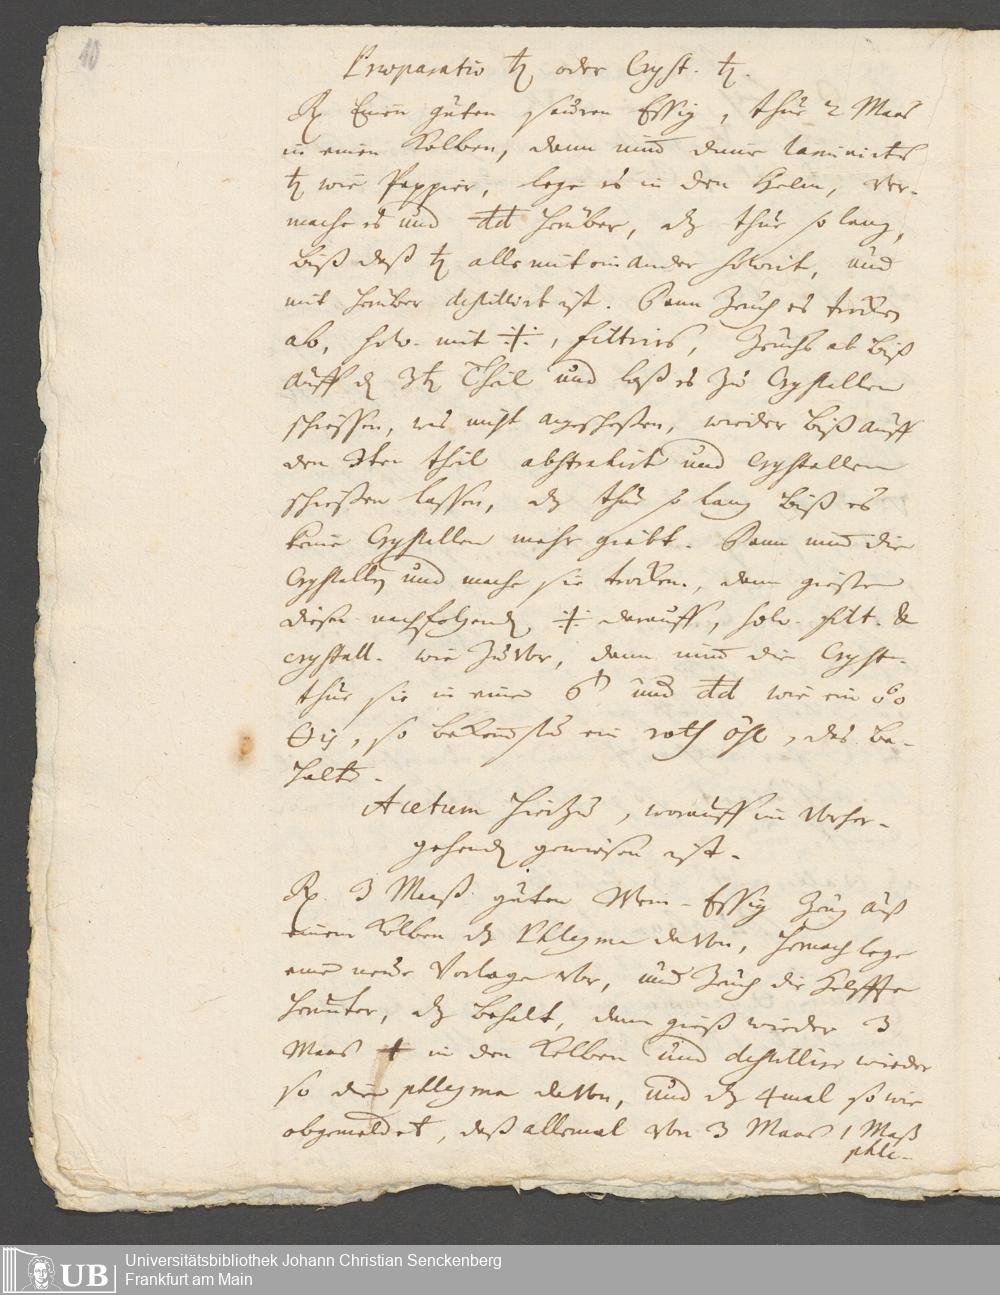 10
Præparatio ♄ oder Cryst. ♄.
℞ Einen guten sauren Essig, thue 2 Maas
in einen Kolben, dann nim̄ dünn laminirtes
♄ wie Pappier, lege es in den Helm, ver-
mache es und dd herüber, dz thue so lang,
biß daß ♄ alles mit einander solvirt, und
mit herüber destillirt ist. Dann zeuch es trocken
ab, solv. mit ·|·, filtrirs, zeuchs ab biß
auff dz 3t Theil und laß es zu Crystallen
schiessen, was nicht angeschossen, wieder biß auff
den 3ten theil abstrahirt und Crystallen
schiessen lassen, dz thue so lang biß es
keine Crystallen mehr giebt. Dann nim̄ die
Crystallen und mache sie trocken, dann giesse
diesen nachfolgenden ·|· darauff, solv. filt. &
crystall. wie zuvor, dann nim̄ die Cryst.
thue sie in eine und dd wie ein
so bekom̄stu ein roth öhl, das be-
halte.
Acetum hierzu, worauff im vorher-
gehenden gewiesen ist.
℞. 3 Maaß guten Wein-Essig zeug auß
einem Kolben dz Phlegma davon, hernach lege
eine neue Vorlage vor, und zeuch die Helffte
herunter, dz behalt, dann gieß wieder 3
Maas + in den Kolben und destillire wieder
so die phlegma davon, und dz 4mal so wie
obgemeldet, daß allemal von 3 Maas 1 Maß
phle-
UB
Universitätsbibliothek Johann Christian Senckenberg
Frankfurt am Main